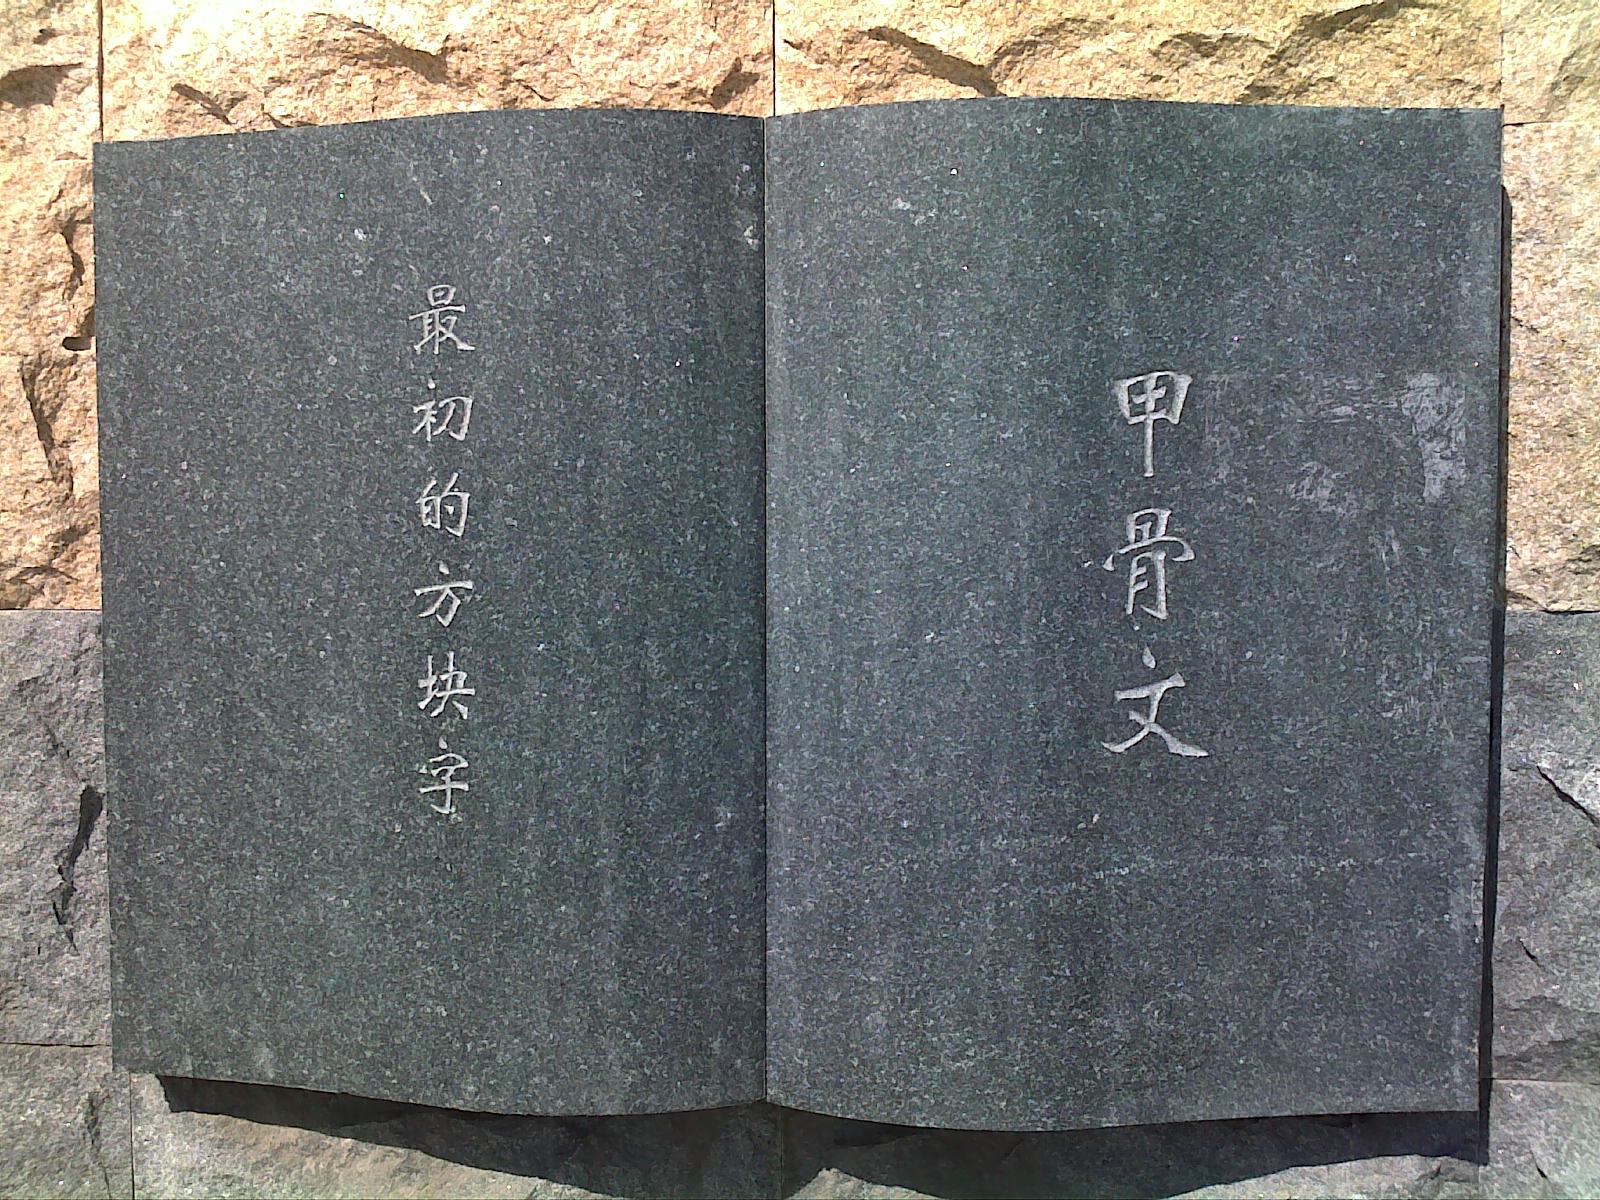 甲骨文
最初的方块字